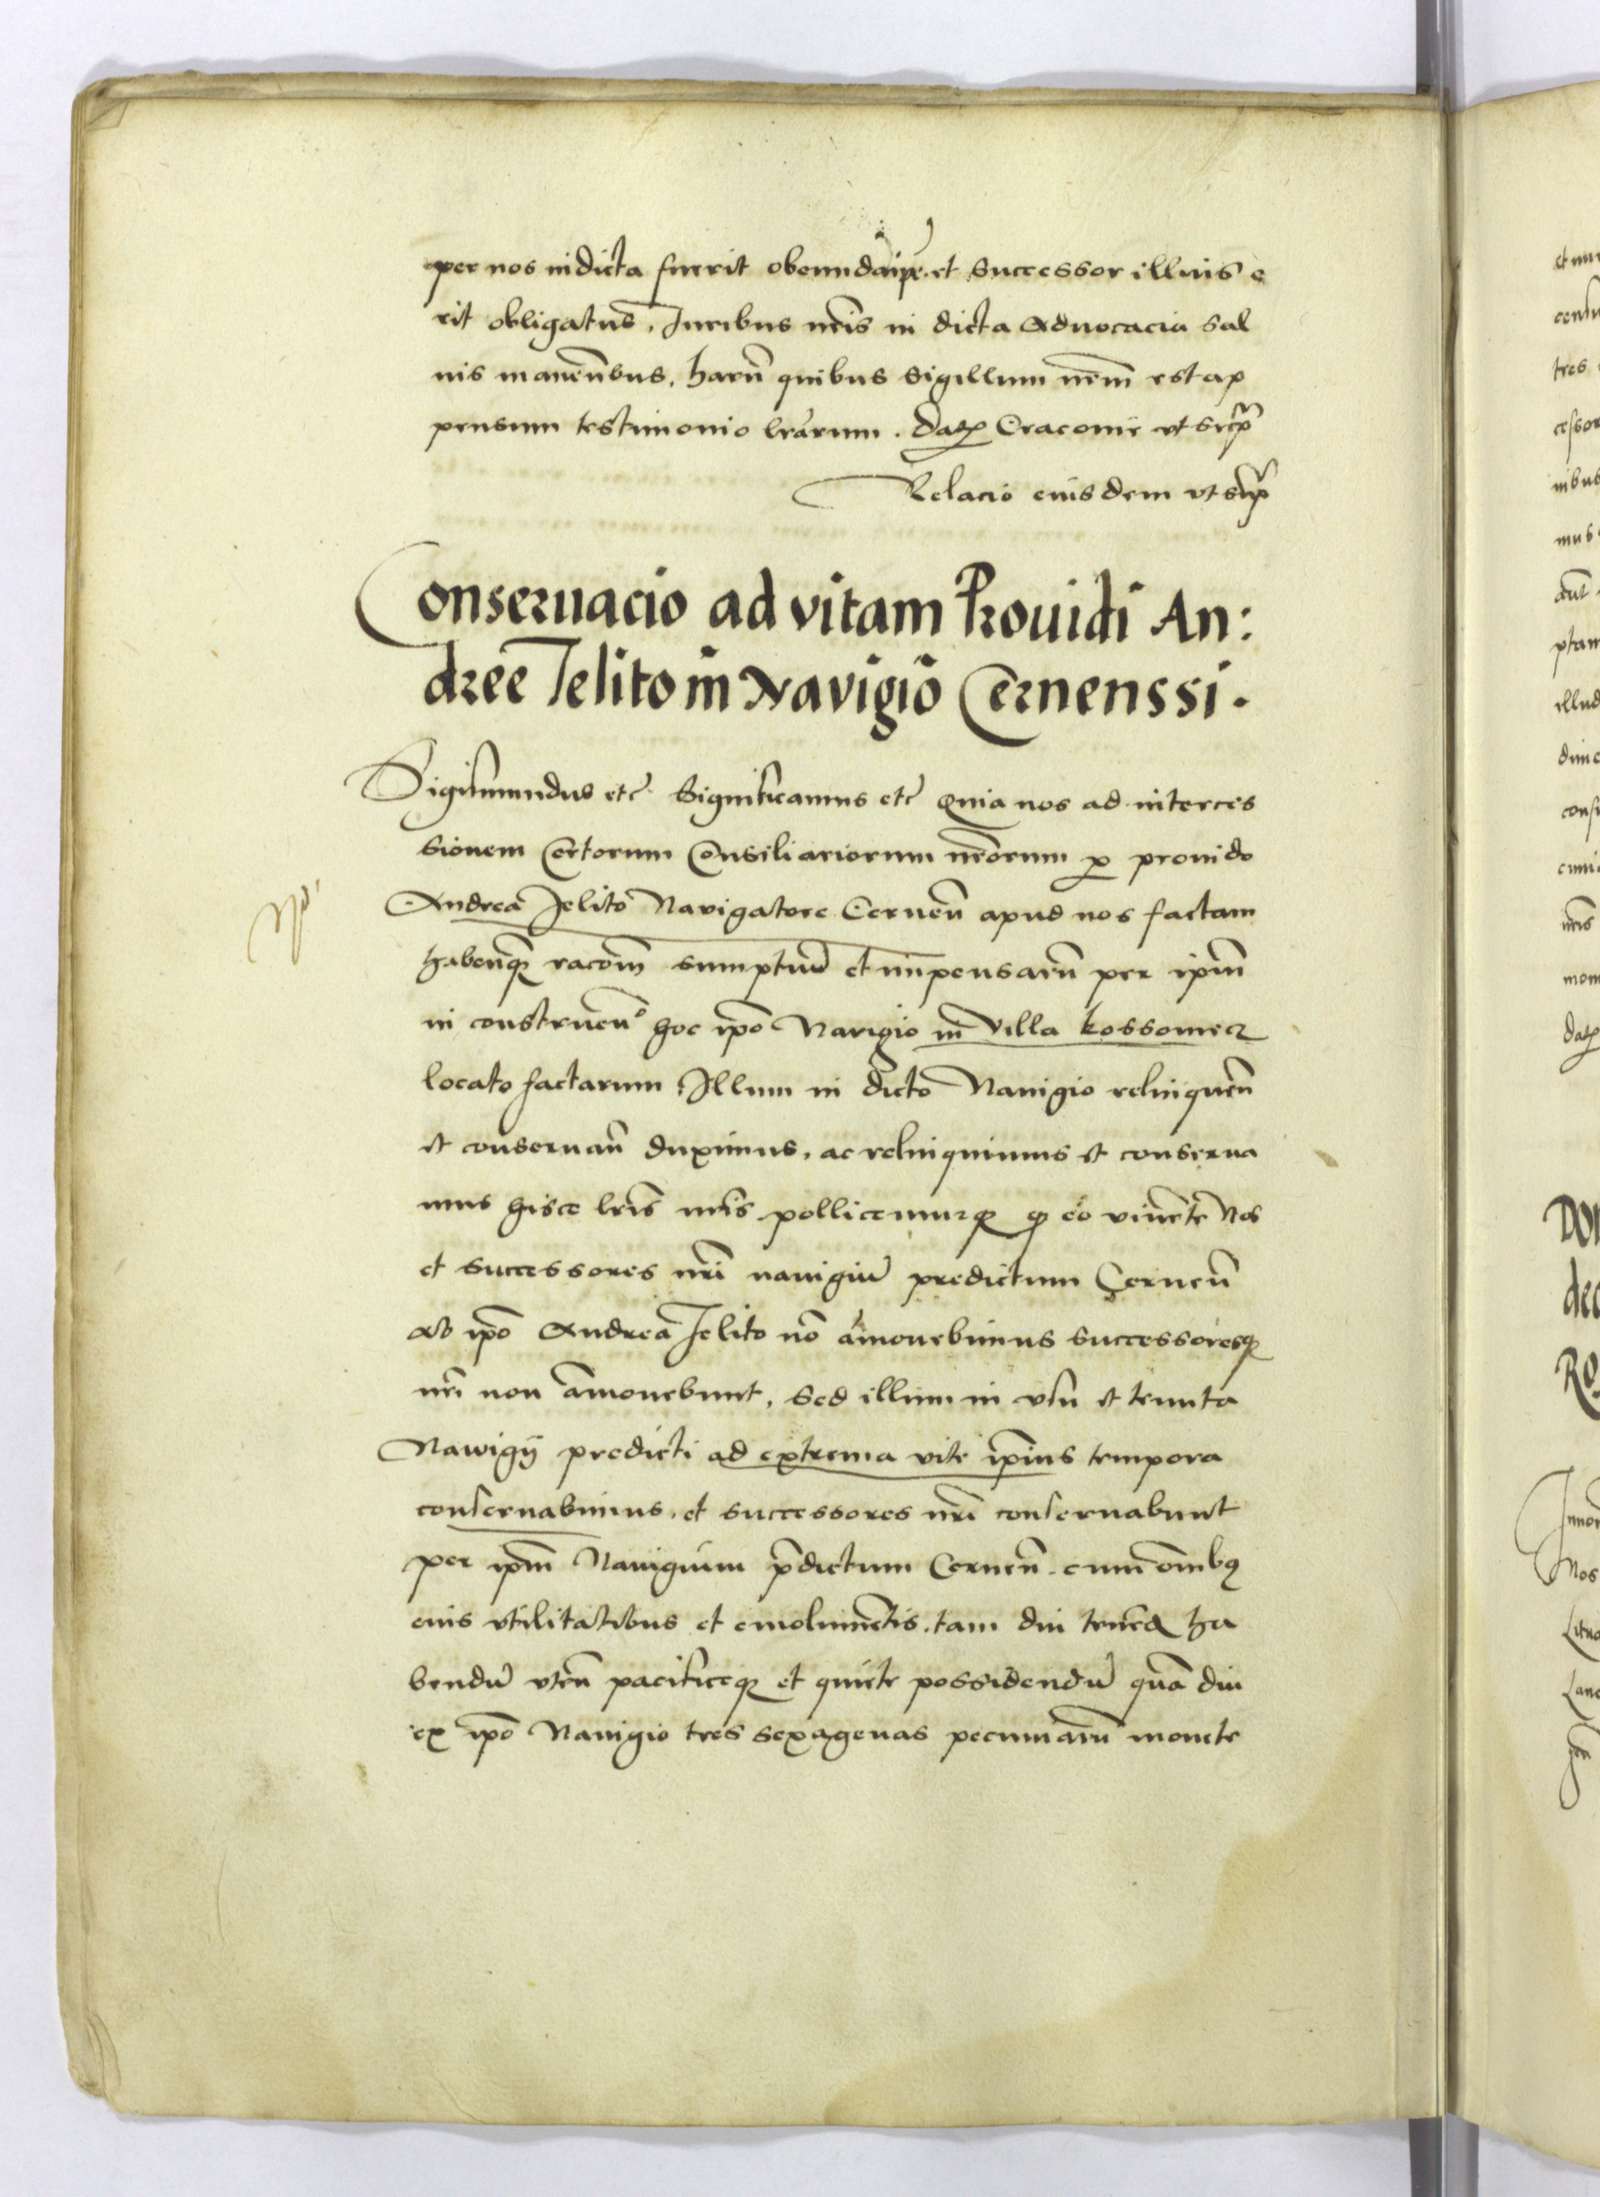 per nos indicta fuerit obeundã ip̃e et Successor illius e
rit obligatus. Iuribus nr̃is in dicta Aduocacia Sal
uis manen̄bus, harū quibus Sigillum nr̃m est ap
pensum testimonio lr̃arum. Datꝫ Cracouie vt supᵃ
Relacio eiusdem vt supᵃ
Conseruacio ad vitam Prouidi An:
dree Jelito in Navigio Cernenssi.
Sigismundus etc̃ Significamus etc̃ Quia nos ad interces
Sionem Certorum Consiliariorum nr̃orum ꝓ prouido
Andrea Jelito Navigatore Cernen̄ apud nos factam
habenꝗꝫ racōm sumptuū et impensarū per ip̃m
in construen̄º hoc ip̃o Navigio in Villa kossomecz
locato factarum Illum in dicto Nauigio relinquen̄
et conseruan̄ duximus, ac relinquimus et conserua
mus hisce lr̃is nr̃is pollicemurqꝫ ꝙ eo viuen̄te Nos
et Successores nr̃i nauigiū predictum Cernen̄
Ab ip̃o Andrea Jelito nō amouebimus Successoresqꝫ
nr̃i non amouebunt, Sed illum in vsu et tenuta
Nawigij predicti ad extrema vite ip̃ius tempora
conseruabimus, et successores nr̃i conseruabunt
per ip̃m Nauigium p̃dictum Cernen̄ cum om̃ibꝫ
eius vtilitatibus et emolumētis, tam diu ten̄ed̄ ha
bendū vten̄ pacificeqꝫ et quiete possidendū quā diu
ex ip̃o Nauigio tres sexagenas pecuniarū monete